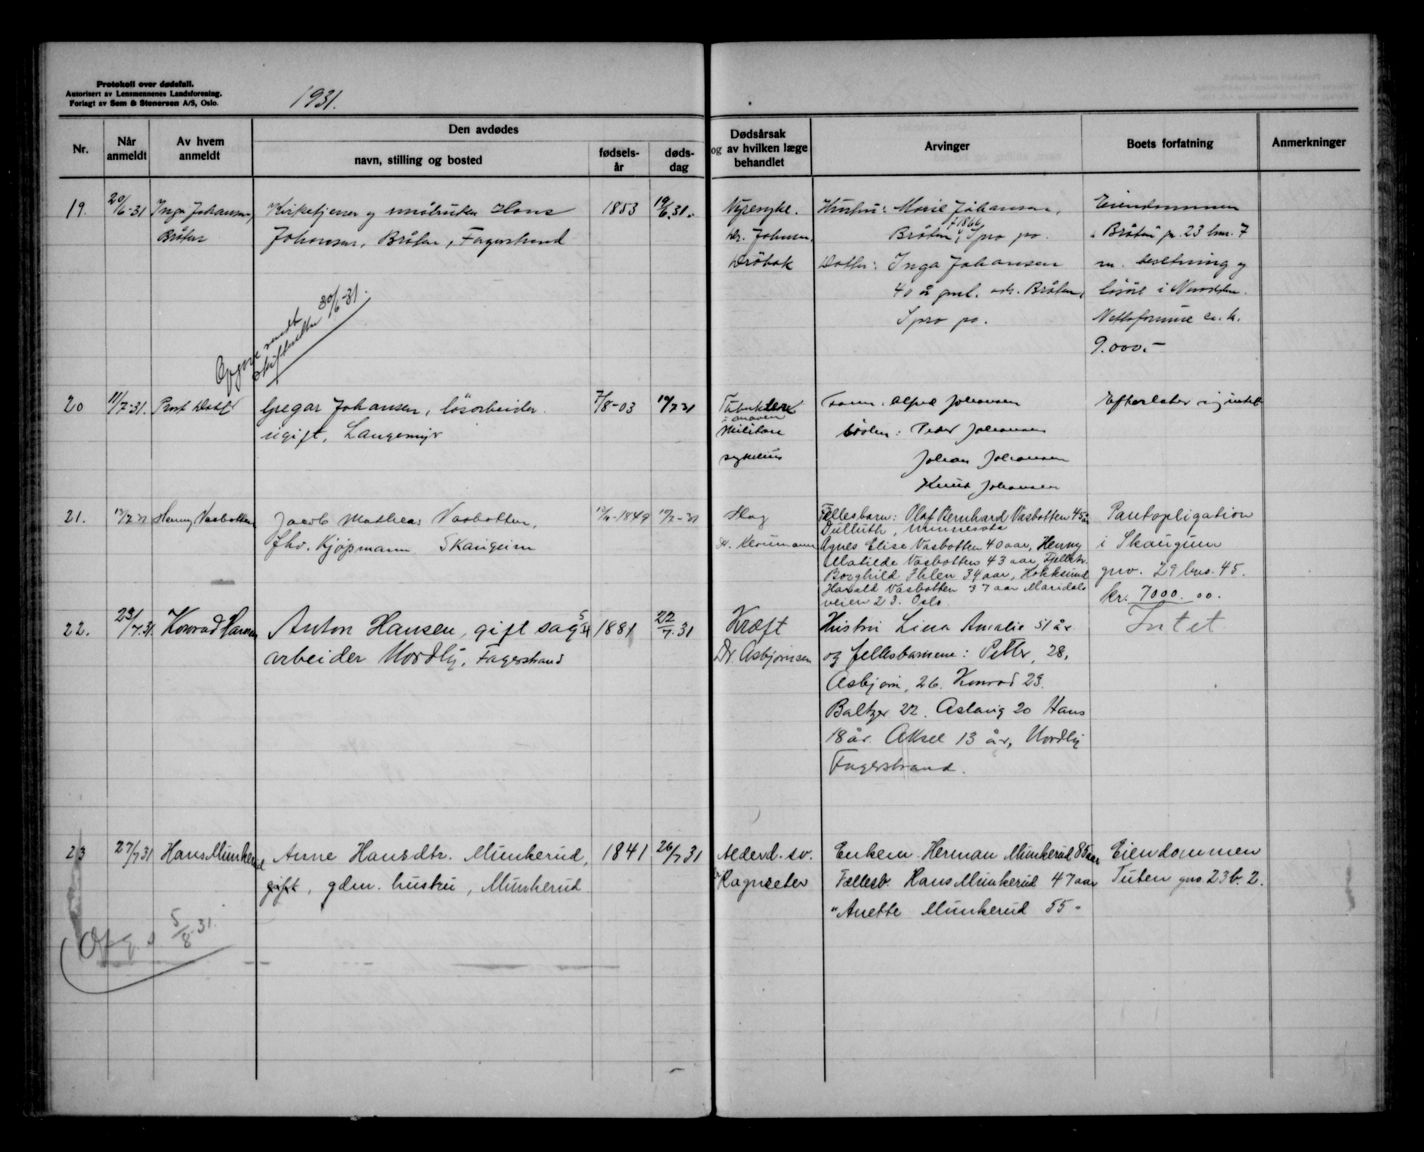 Protokoll over dødsfall.
Autorisert av Lensmennenes Landsforening.
Forlagt av Sem & Stenersen A/S, Oslo.
1931.
Nr.
Når anmeldt
Av hvem anmeldt
Den avdødes
navn, stilling og bosted
fødsels-år
døds-dag
Dødsårsak
og av hvilken læge
behandlet
Arvinger
Boets forfatning
Anmerkninger
19. 20/6-31 Inga Johansen, Kirketjener og Hans 1853 19/6.31. Nyresyke. Hustru: Marie Johansen, Eiendommen
Bråten Johansen, Bråten, Fagerstrand Dr. Johnsen, Bråten, f 1866 Spro po. Bråten gr. 23 bnr. 7
Drøbak Datter: Inga Johansen m. besetning og
40 å gml. adr. Bråten, løsøre i
Spro po. Nettoformue ca. kr.
9.000.-
Opgave sendt
skifteretten 30/6-31.
20 11/7-31. Prost Gregar Johansen, løsarbeider. 7/8-03 Alfred Johansen Efterlater sig intet
ugift, Langemyr Militære Peder Johansen
sykehus Johan Johansen
Knut Johansen
21. Henny Vasbotten Jacob Mathias Vasbotten, -1849 Slag Fellesbarn: Olaf Bernhard Vasbotten 45 år Pantopligation
fhv. Kjøpmann Skaugum Dulluth, Minnesota i Skaugum
Agnes Elise Vasbotten 40 aar, Henny gnr. 29 bnr. 45.
Matilde Vasbotten 43 aar, kr. 7000.00.
Borghild Ihlen 34 aar, Hokksund
Harald Vasbotten 37 aar Maridals
veien 23. Oslo.
22. 23/7.31 Konrad Hansen Anton Hansen, gift sag 1881 22/7.31 Kræft Hustru Lina Amalie 51 år Intet
arbeider Nordly, Fagerstrand Dr Asbjørnsen og fellesbarnene: Petter, 28,
Asbjørn, 26. Konrad 23.
Baltzer 22. Aslaug 20 Hans
18 år. Aksel 13 år, Nordly
Fagerstrand.
23 27/7 31 Hans Munkerud Anne Hansdtr. Munkerud, 1841 26/7 31 Alderd. sv. Enkem. Herman Munkerud 86 aar Eiendommen
gift, gdm. hustru, Munkerud Ragnseter Fællesb. Hans Munkerud 47 aar Tuten gno 23 b. 2.
" Anette Munkerud 55 -
5/8-31.